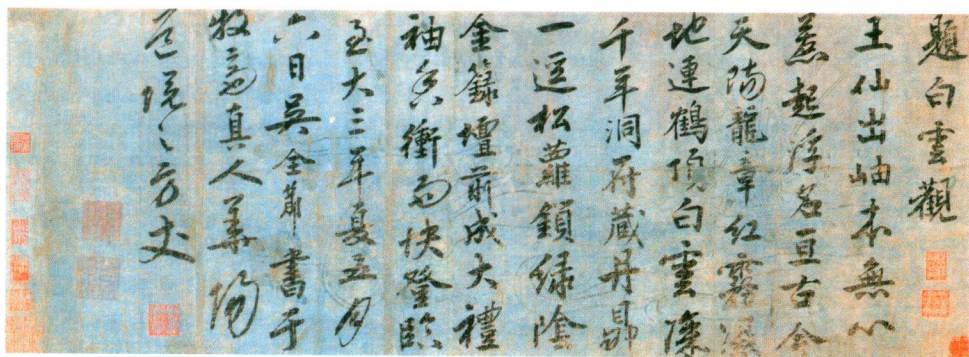 題白雲觀
王仙出岫本無心
惹起浮名亘古今
天龍章紅霧濕
地連鶴頂白雲深
千年洞府藏丹鼎
一逕松蘿鎖綠陰
金籙壇前成大禮
袖香衝雨快登臨
至大三年夏五月
六日吳全節書于
牧齋真人華陽
道院之方丈